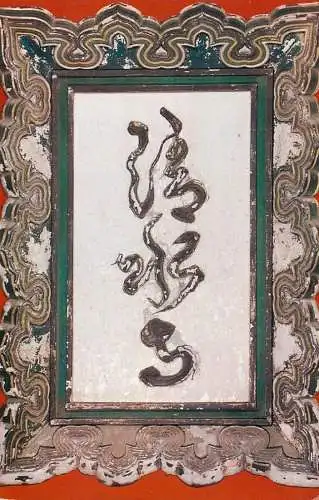 清水寺